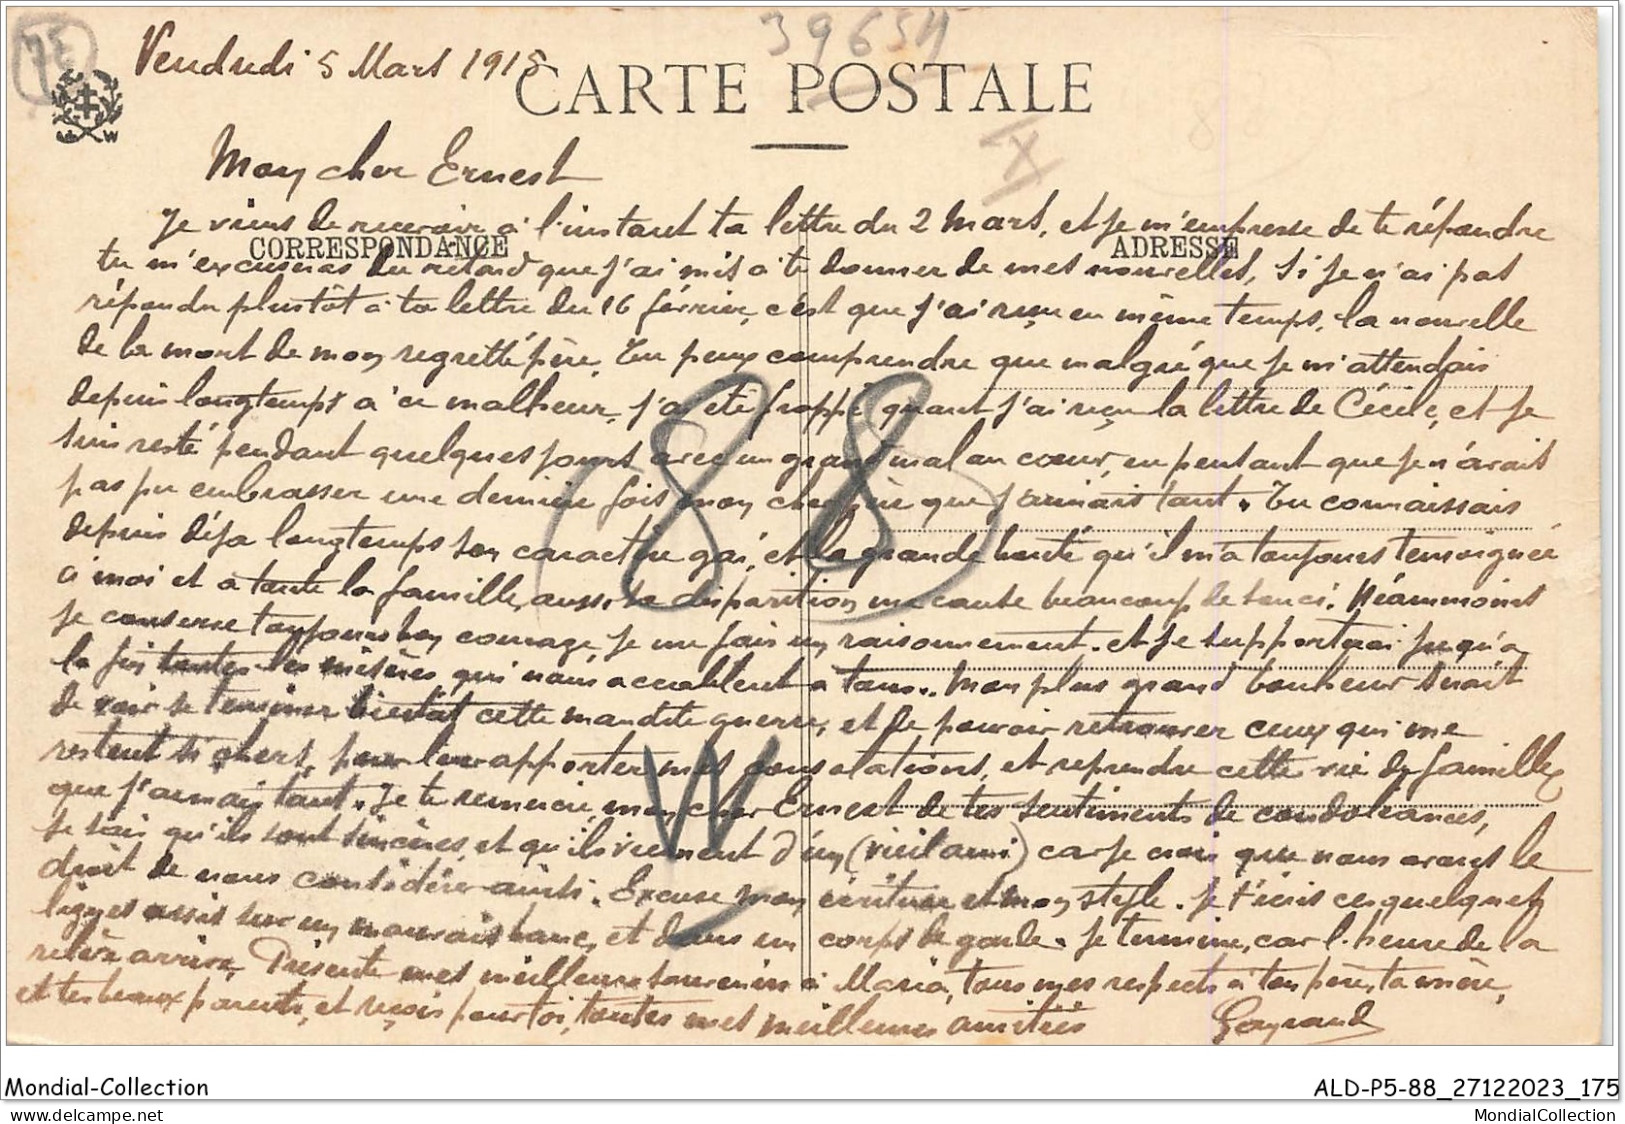 39654
Vendredi 5 Mars 1915
CARTE POSTALE
W
X
Mon cher Ernest
Je viens de recevoir à l'instant ta lettre du 2 Mars, et je m'empresse de te répondre
CORRESPONDANCE
ADRESSE
tu m'excuseras du retard que j'ai mis à te donner de mes nouvelles, si je n'ai pas
répondu plustôt à ta lettre du 16 février, c'est que j'ai reçu en même temps, la nouvelle
de la mort de mon regretté père. Tu peux comprendre que malgré que je m'attendais
depuis longtemps à ce malheur, j'ai été frappé quant j'ai reçu la lettre de Cécile, et je
suis resté pendant quelques jours avec un grand mal au cœur, en pensant que je n'avais
pas pu embrasser une dernière fois mon cher père que j'aimais tant. Tu connaissais
depuis déja longtemps son caractère gai, et la grande bonté qu'il m'a toujours temoignée
à moi et a toute la famille, aussi sa disparition me cause beaucoup de souci. Néammoins
je conserve toujours bon courage, je me fais un raisonnement. et je supporterai jusqu'a
la fin toutes les misères qui nous accablent a tous. Mon plus grand bonheur serait
de voir se terminer bientôt cette maudite guerre, et de pouvoir retrouver ceux qui me
restent si chers, pour leur apporter mes consolations, et reprendre cette vie de famille
que j'aimais tant. Je te remercie, mon cher Ernest de tes sentiments de condoléances,
je sais qu'ils sont sincères, et qu'ils viennent d'un (vieil ami) car je crois que nous avons le
droit de nous considérer ainsi. Excuse mon écriture et mon style. Je t'écris ces quelques
lignes assis sur un mauvais banc, et dans un corps de garde. Je termine, car l'heure de la
relève arrive, Présente mes meilleurs souvenirs à Maria, tous mes respects à ton père, ta mère,
et tes beaux parents, et reçois pour toi, toutes mes meilleures amitiés
Gayraud
88
W
Mondial-Collection
ALD-P5-88_27122023_175
delcampe.net
MondialCollection